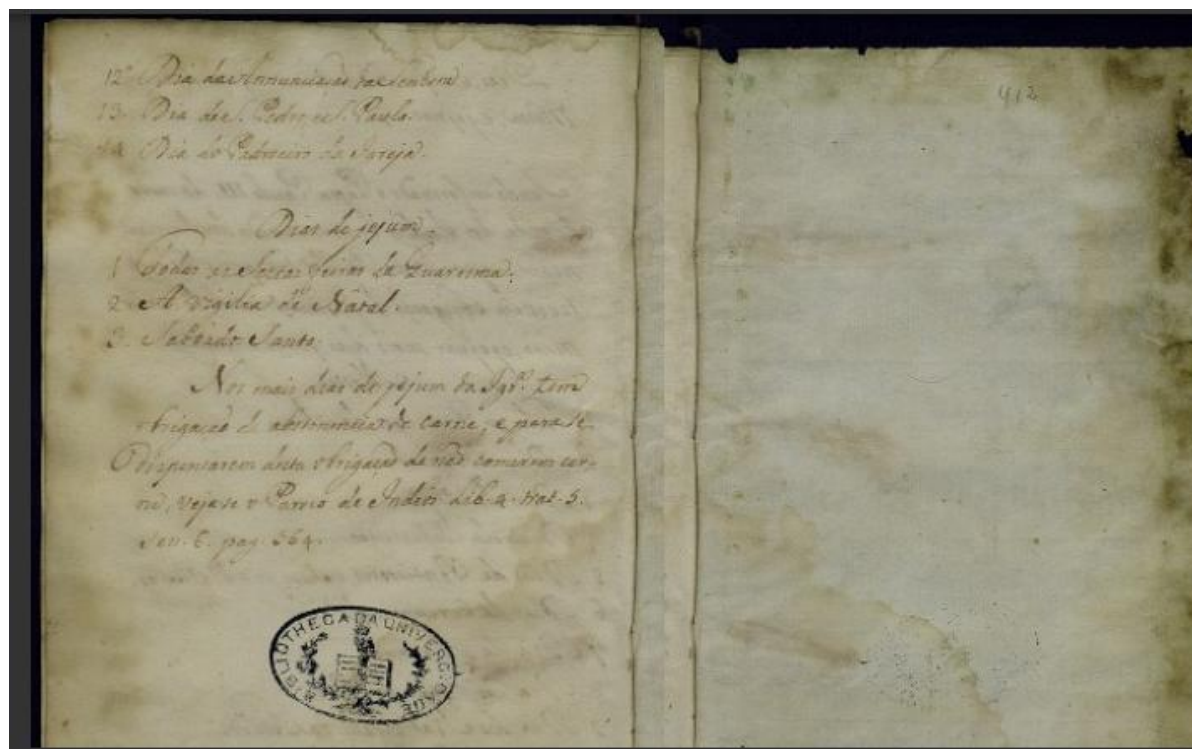 12. Dia da Annunciação da Senhora
13. Dia de S. Pedro e S. Paulo.
14. Dia do Padroeiro da Igreja.
Dias de jejum.
1. Todas as Sextas feiras da Quaresma.
2. A vigilia do Natal.
3. Sabbado Santo.
Nos mais dias de jejum da Igrª. tem
obrigação de abstinencia de carne, e para se
dispensarem desta obrigação de não comerem car-
ne, vejase o Paroco de Indios Lib. 4. trat. 5.
Seu. 6. pag. 564.
BIBLIOTHECA DA UNIVERSIDADE
412